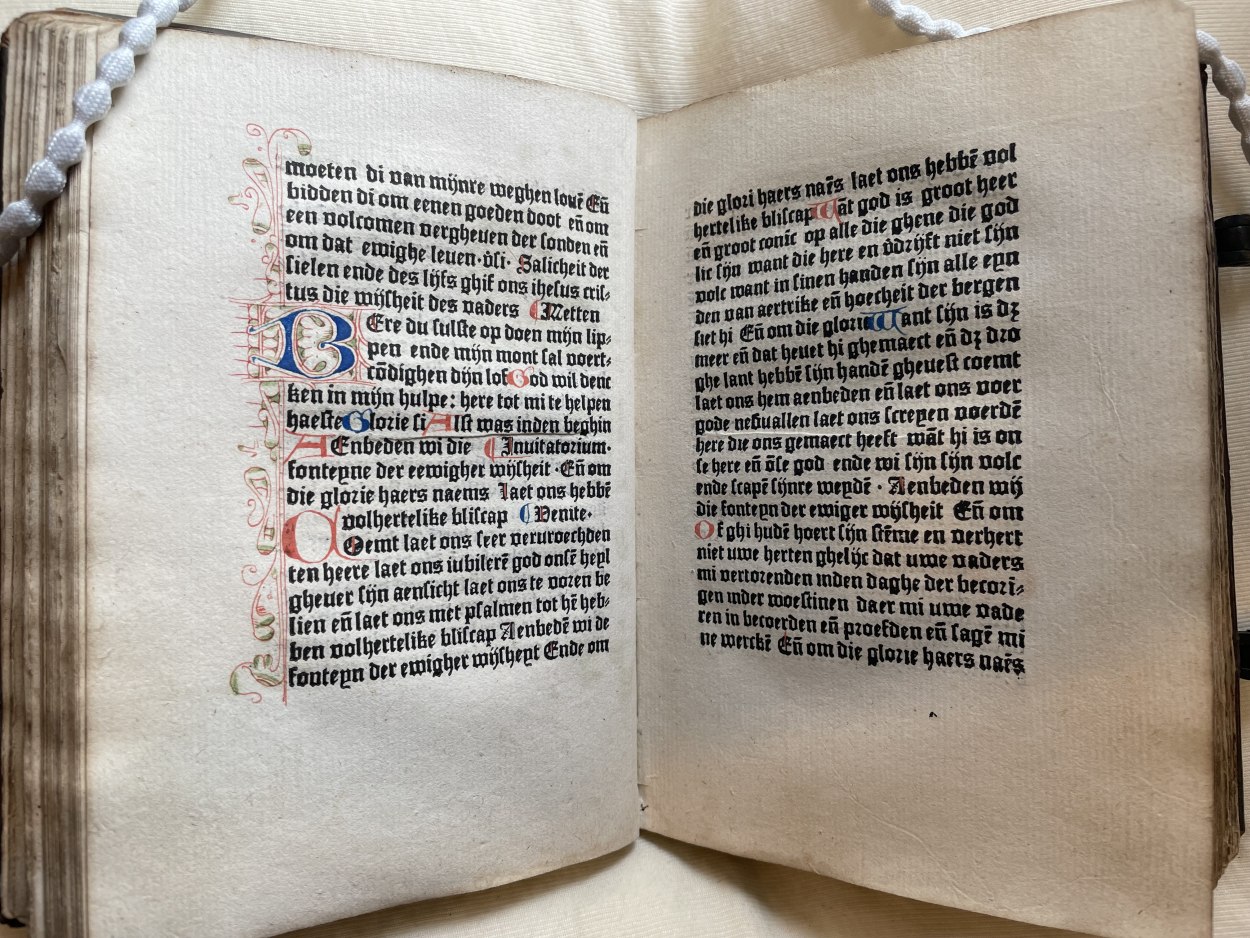 moeten di van mijnre weghen louē Eñ
bidden di om eenen goeden doot eñ om
een volcomen vergheuen der sonden eñ
om dat ewighe leuen·v̄si· Salicheit der
sielen ende des lijfs ghif ons ihesus cris⸗
tus die wijsheit des vaders ⸿Metten
HEre du sulste op doen mijn lip⸗
pen ende mijn mont sal voert⸗
cōdighen dijn lof God wil denc
ken in mijn hulpe: here tot mi te helpen
haeste Glorie si Alst was inden beghin
AEnbeden wi die ⸿Inuitatorium·
fonteyne der eewigher wijsheit ·Eñ om
die glorie haers naems laet ons hebbē
volhertelike bliscap ⸿Venite·
COemt laet ons seer veruroechden
ten heere laet ons iubilerē god onsē heyl
gheuer sijn aensicht laet ons te voren be
lien eñ laet ons met psalmen tot hē heb⸗
ben volhertelike bliscap Aenbedē wi de
fonteyn der ewigher wijsheyt Ende om
die glori haers naēs laet ons hebbē vol
hertelike bliscap Wāt god is groot heer
eñ groot conīc op alle die ghene die god
lic sijn want die here en v̄drijft niet sijn
volc want in sinen handen sijn alle eyn
den van aertrike eñ hoecheit der bergen
siet hi Eñ om die glorie Want sijn is dʒ
meer eñ dat heuet hi ghemaect eñ dʒ dro
ghe lant hebbē sijn handē gheuest coemt
laet ons hem aenbeden eñ laet ons voer
gode neðuallen laet ons screyen voerdē
here die ons gemaect heeft wāt hi is on
se here eñ ōse god ende wi sijn sijn volc
ende scapē sijnre weydē · Aenbeden wij
die fonteyn der ewiger wijsheit Eñ om
Of ghi hudē hoert sijn stēme en verhert
niet uwe herten ghelijc dat uwe vaders
mi vertorenden inden daghe der becorī⸗
gen inder woestinen daer mi uwe vade
ren in becoerden eñ proefden eñ sagē mi
ne werckē Eñ om die glorie haers naēs